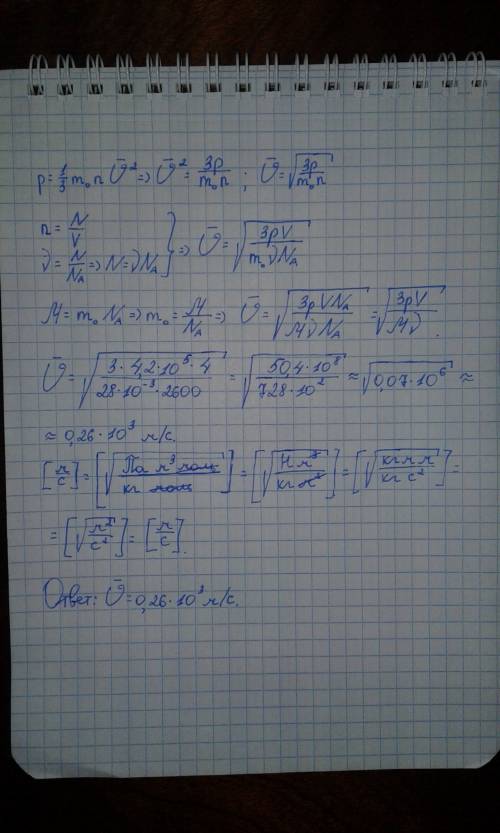 p = 1/3 m₀ n ῡ² => ῡ² = 3p/(m₀n) ; ῡ = √(3p/(m₀n))
n = N/V
ν = N/N_A => N = νN_A } => ῡ = √(3pV/(m₀νN_A))
M = m₀ N_A => m₀ = M/N_A => ῡ = √(3pVN_A/(MνN_A)) = √(3pV/(Mν)) .
ῡ = √(3·4,2·10⁵·4/(28·10⁻³·2600)) = √(50,4·10⁸/(728·10²)) ≈ √(0,07·10⁶) ≈
≈ 0,26·10³ м/с.
[м/с] = [√(Па м³ моль/(кг моль))] = [√(Н м³/(кг м²))] = [√(кг м м/(кг с²))] =
= [√(м²/с²)] = [м/с].
Ответ: ῡ = 0,26·10³ м/с.